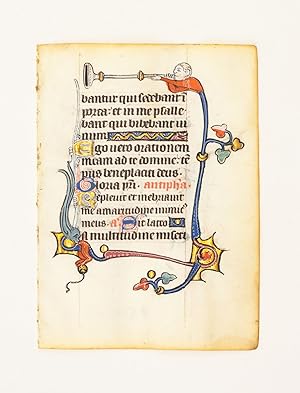 bantur qui sedebant ĩ
porta: et in me psalle
bant qui bibebant ui
num
Ego uero orationem
meam ad te domine: tẽ
pus beneplaciti deus
Gloria pr̃i. antipha.
Repleuit et inebriauit
me amaritudine inimic
meus. a Sit lacto
A multitudine miseri